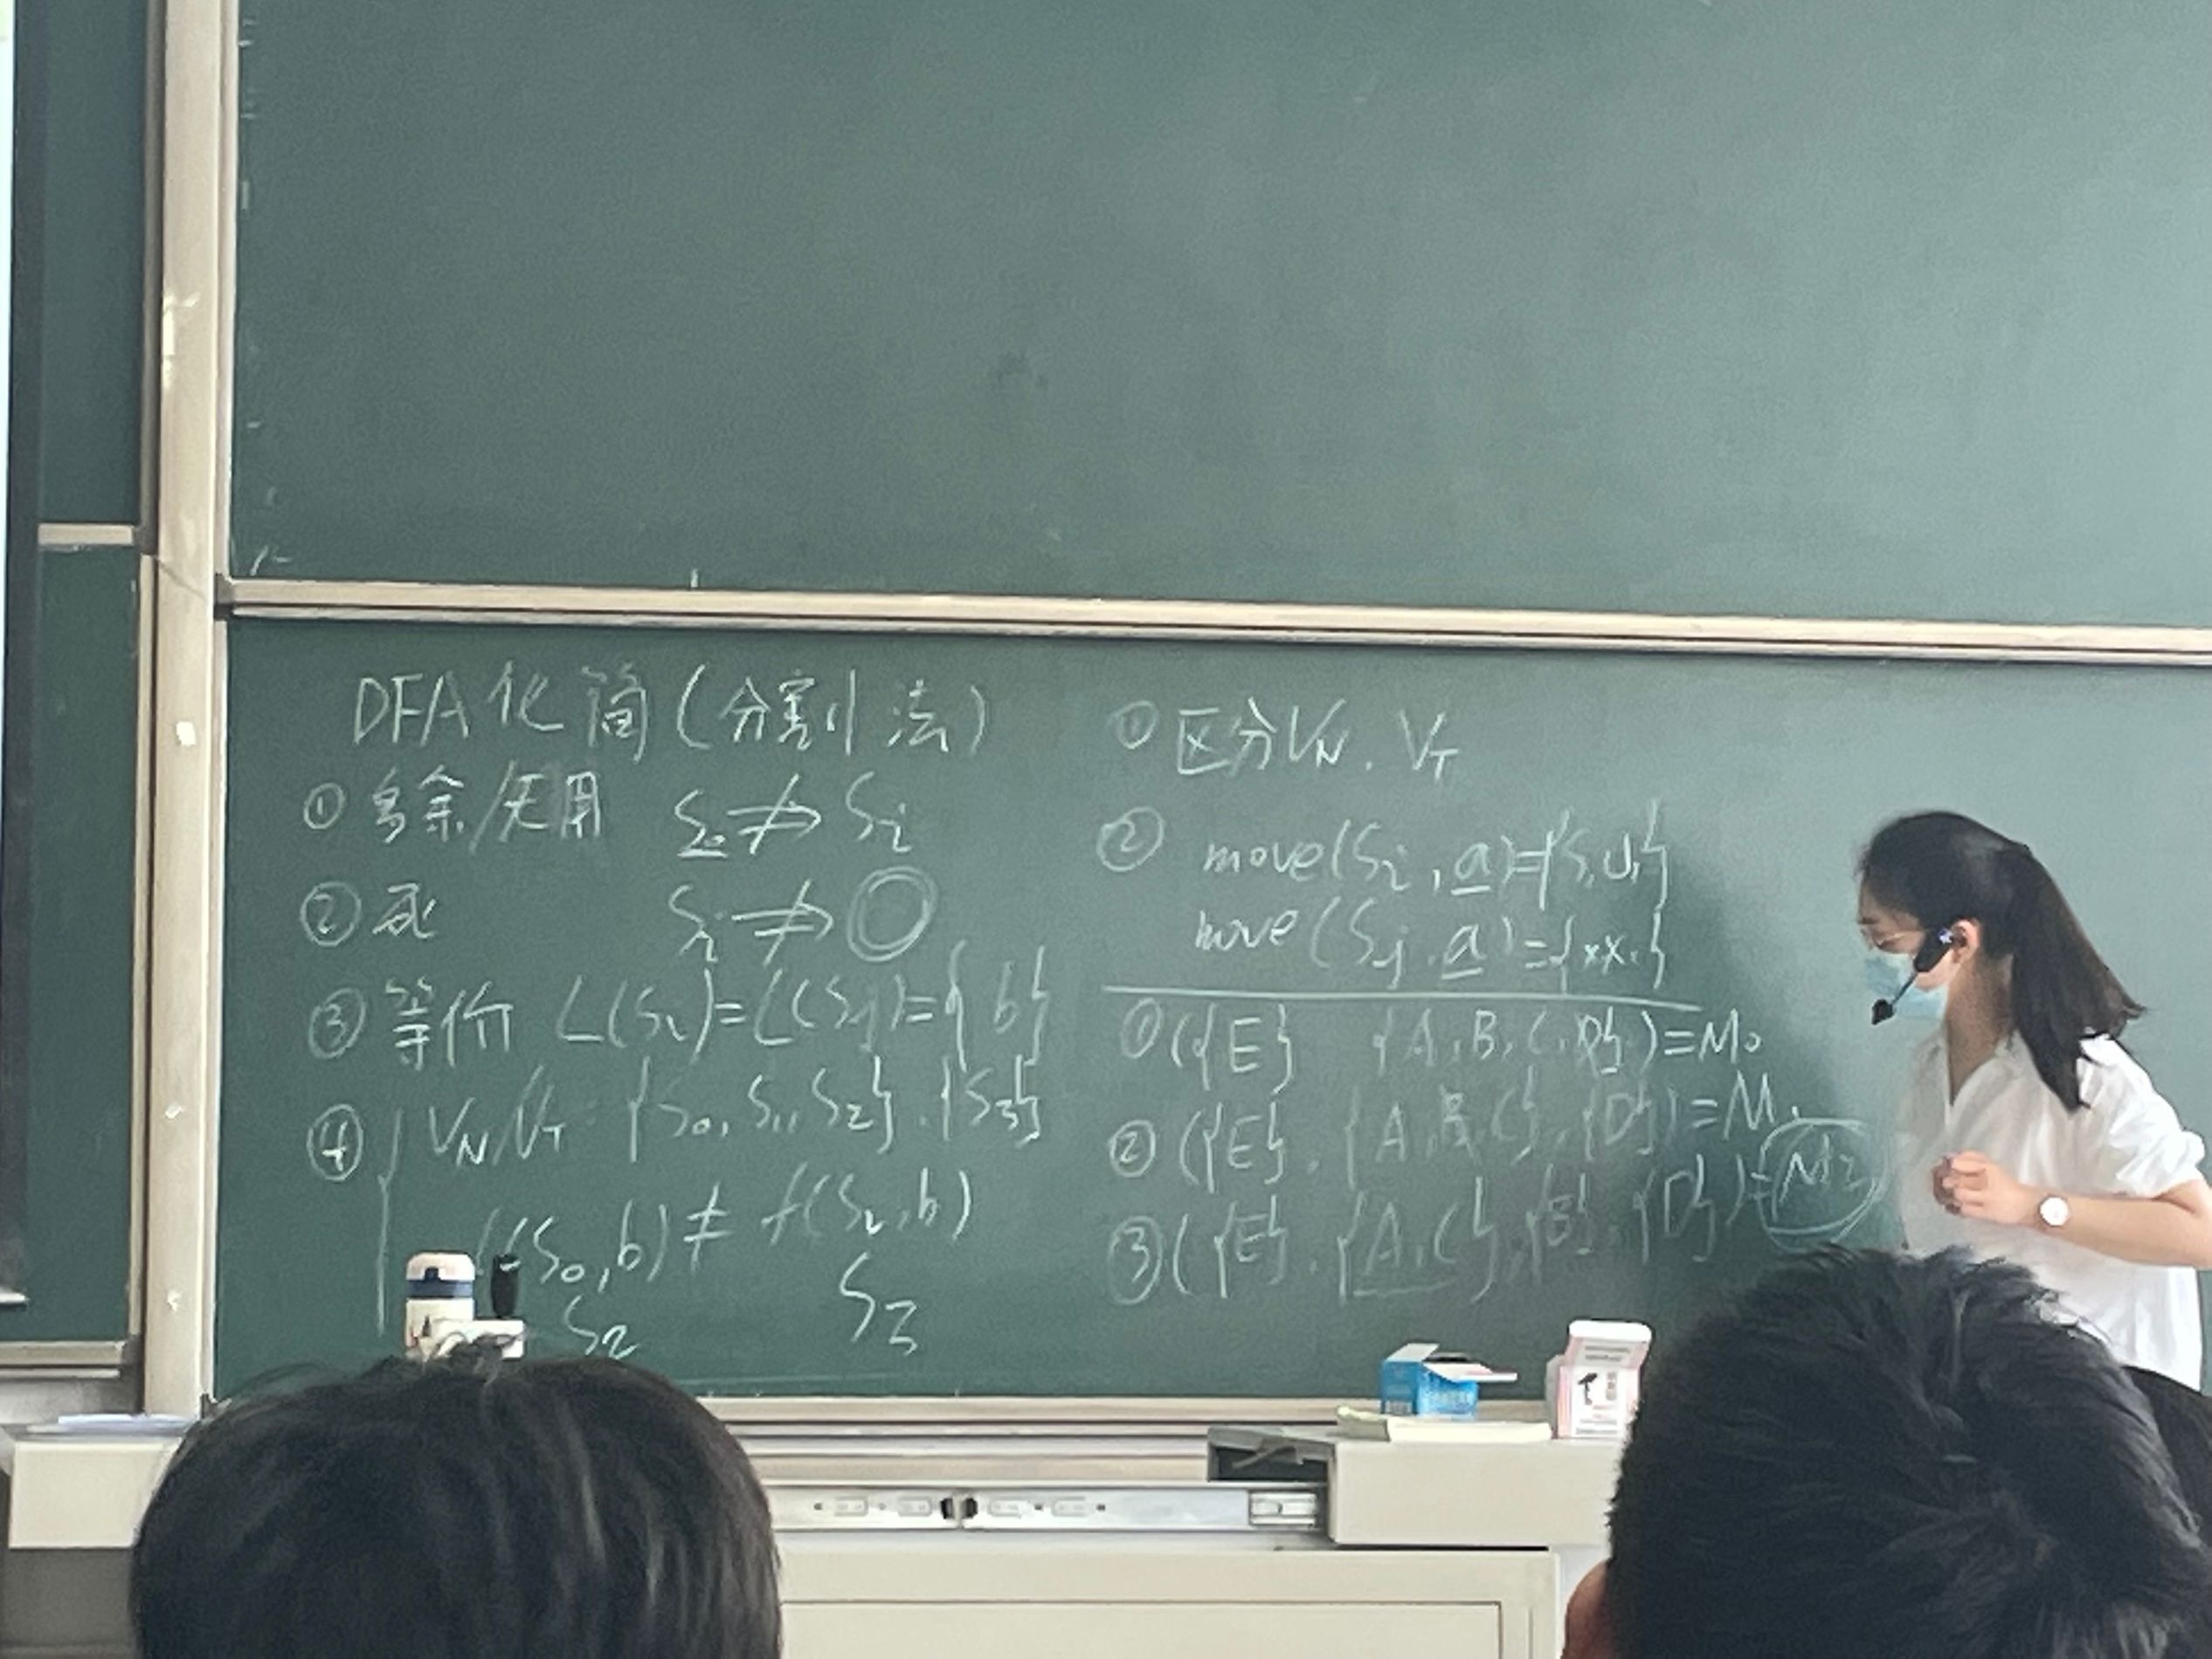 DFA化简(分割法)
① 多余/无用 S₀ ⇏ Sᵢ
② 死 Sᵢ ⇏ ◎
③ 等价 L(Sᵢ)=L(Sⱼ)={ b}
④ { V_N/V_T {S₀,S₁,S₂}.{S₃}
(S₀,b) ≠ f(S₁,b)
S₂ S₃
① 区分V_N. V_T
② move(Sᵢ,a)={S,U,}
move(Sⱼ,a)={xx.}
① ({E} {A,B,C,D})=M₀
② ({E}.{A,B,C}.{D})=M₁
③ ({E}.{A,C}.{B}.{D})=M₂